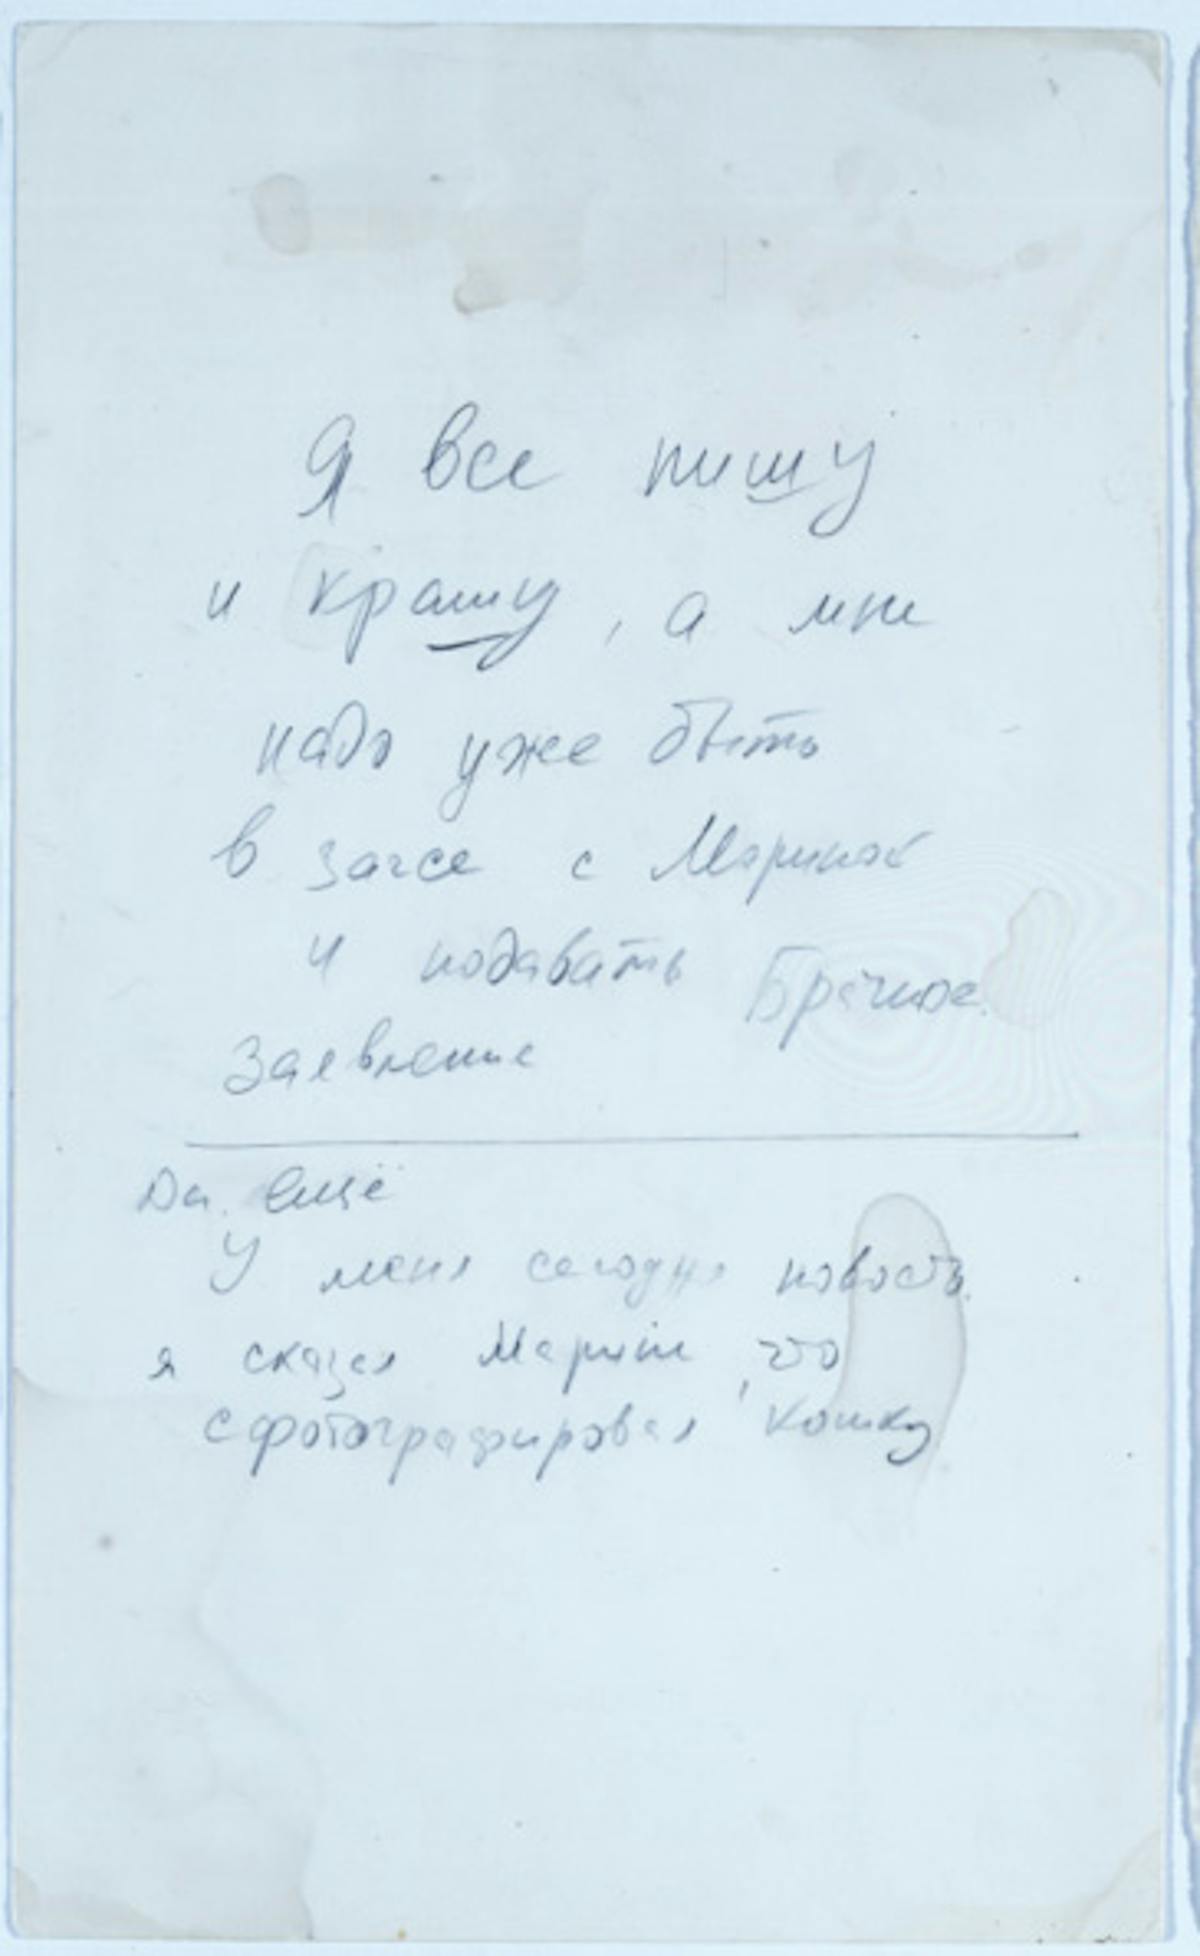 Я все пишу
и крашу, а мне
надо уже быть
в загсе с Мариной
и подавать Брачное
заявление
Да. Ещё
У меня сегодня новость.
я сказал Марине, что
сфотографировал кошку